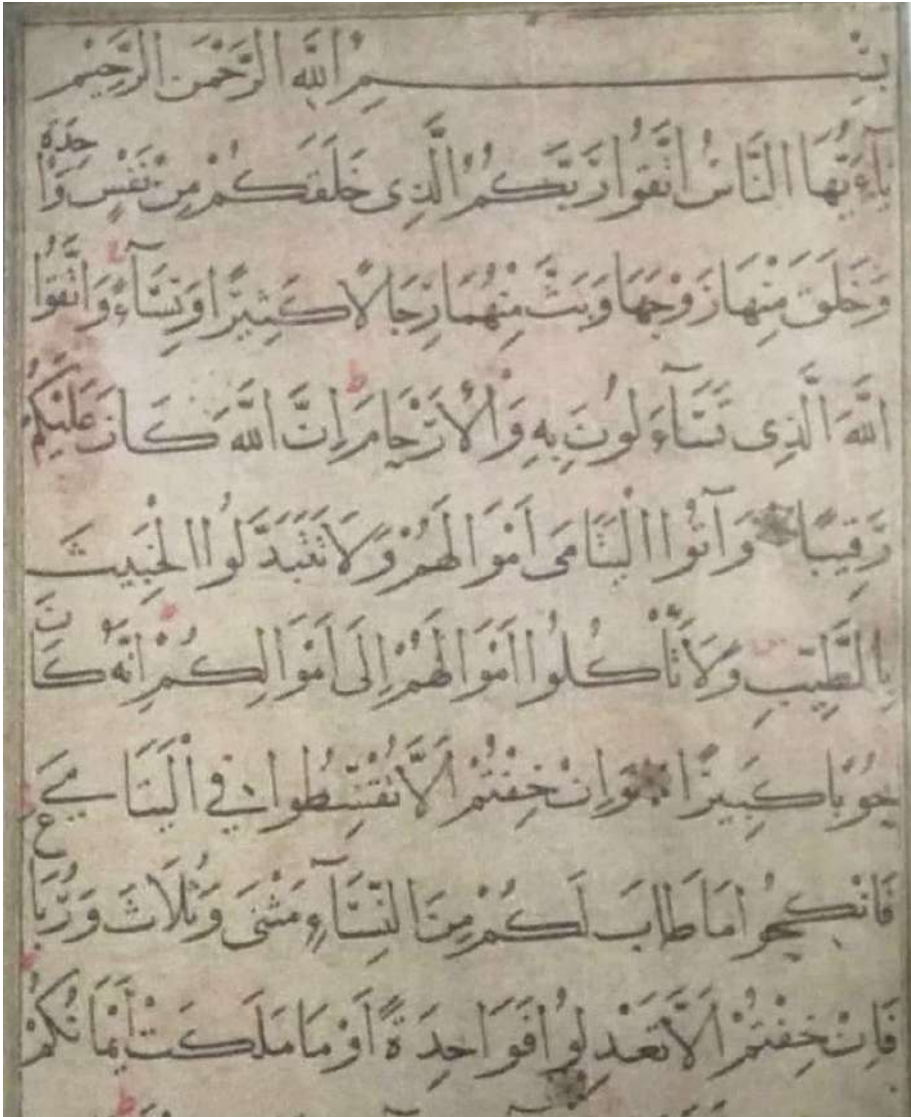 بِسْمِ اللهِ الرَّحْمَنِ الرَّحِيمِ
يَآءَيُّهَا النَّاسُ اتَّقُوا رَبَّكُمُ الَّذِى خَلَقَكُمْ مِنْ نَفْسٍ وَاحِدَةٍ
وَخَلَقَ مِنْهَا زَوْجَهَا وَبَثَّ مِنْهُمَا رِجَالًا كَثِيرًا وَنِسَآءً وَاتَّقُوا
اللَّهَ الَّذِى تَسَآءَلُونَ بِهِ وَالْأَرْحَامَ إِنَّ اللَّهَ كَانَ عَلَيْكُمْ
رَقِيبًا وَآتُوا الْيَتَامَى أَمْوَالَهُمْ وَلَا تَتَبَدَّلُوا الْخَبِيثَ
بِالطَّيِّبِ وَلَا تَأْكُلُوا أَمْوَالَهُمْ إِلَى أَمْوَالِكُمْ إِنَّهُ كَانَ
حُوبًا كَبِيرًا وَإِنْ خِفْتُمْ أَلَّا تُقْسِطُوا فِي الْيَتَامَى
فَانْكِحُوا مَا طَابَ لَكُمْ مِنَ النِّسَآءِ مَثْنَى وَثُلَاثَ وَرُبَاعَ
فَإِنْ خِفْتُمْ أَلَّا تَعْدِلُوا فَوَاحِدَةً أَوْ مَا مَلَكَتْ أَيْمَانُكُمْ